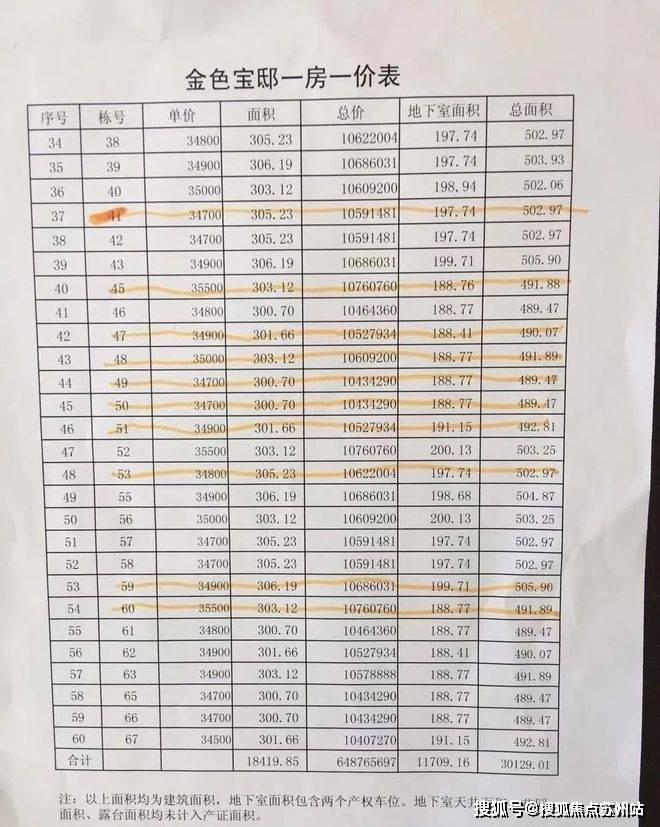 金色宝邸一房一价表
序号 栋号 单价 面积 总价 地下室面积 总面积
34 38 34800 305.23 10622004 197.74 502.97
35 39 34900 306.19 10686031 197.74 503.93
36 40 35000 303.12 10609200 198.94 502.06
37 41 34700 305.23 10591481 197.74 502.97
38 42 34700 305.23 10591481 197.74 502.97
39 43 34900 306.19 10686031 199.71 505.90
40 45 35500 303.12 10760760 188.76 491.88
41 46 34800 300.70 10464360 188.77 489.47
42 47 34900 301.66 10527934 188.41 490.07
43 48 35000 303.12 10609200 188.77 491.89
44 49 34700 300.70 10434290 188.77 489.47
45 50 34700 300.70 10434290 188.77 489.47
46 51 34900 301.66 10527934 191.15 492.81
47 52 35500 303.12 10760760 200.13 503.25
48 53 34800 305.23 10622004 197.74 502.97
49 55 34900 306.19 10686031 198.68 504.87
50 56 35000 303.12 10609200 200.13 503.25
51 57 34700 305.23 10591481 197.74 502.97
52 58 34700 305.23 10591481 197.74 502.97
53 59 34900 306.19 10686031 199.71 505.90
54 60 35500 303.12 10760760 188.77 491.89
55 61 34800 300.70 10464360 188.77 489.47
56 62 34900 301.66 10527934 188.41 490.07
57 63 34900 303.12 10578888 188.77 491.89
58 65 34700 300.70 10434290 188.77 489.47
59 66 34700 300.70 10434290 188.77 489.47
60 67 34500 301.66 10407270 191.15 492.81
合计 18419.85 648765697 11709.16 30129.01
注：以上面积均为建筑面积，地下室面积包含两个产权车位。地下室天井
面积、露台面积均未计入产证面积。
搜狐号@搜狐焦点苏州站